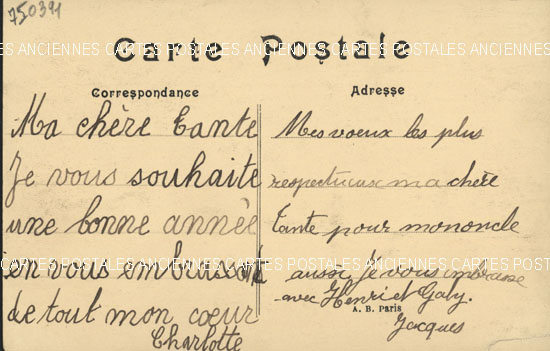 750391
Carte Postale
CARTES POSTALES ANCIENNES CARTES POSTALES ANCIENNES CARTES POSTALES ANCIENNES
Correspondance
Ma chère Tante
Je vous souhaite
une bonne année
en vous embrassant
de tout mon cœur
Charlotte
Adresse
Mes voeux les plus
respectueux ma chère
Tante pour mononcle
aussi je vous embrasse
avec Henri et Gaby.
A. B. Paris
Jacques